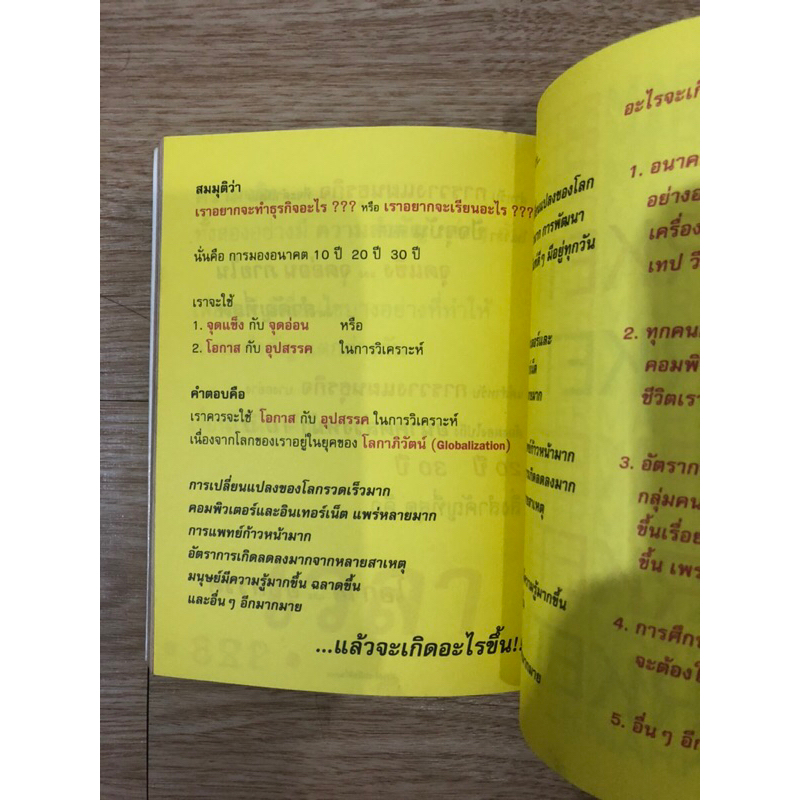 สมมุติว่า
เราอยากจะทำธุรกิจอะไร ??? หรือ เราอยากจะเรียนอะไร ???
นั่นคือ การมองอนาคต 10 ปี 20 ปี 30 ปี
เราจะใช้
1. จุดแข็ง กับ จุดอ่อน หรือ
2. โอกาส กับ อุปสรรค ในการวิเคราะห์
คำตอบคือ
เราควรจะใช้ โอกาส กับ อุปสรรค ในการวิเคราะห์
เนื่องจากโลกของเราอยู่ในยุคของ โลกาภิวัตน์ (Globalization)
การเปลี่ยนแปลงของโลกรวดเร็วมาก
คอมพิวเตอร์และอินเทอร์เน็ต แพร่หลายมาก
การแพทย์ก้าวหน้ามาก
อัตราการเกิดลดลงมากจากหลายสาเหตุ
มนุษย์มีความรู้มากขึ้น ฉลาดขึ้น
และอื่นๆ อีกมากมาย
...แล้วจะเกิดอะไรขึ้น!!
ของโลก
การพัฒนา
มีอยู่ทุกวัน
ก้าวหน้ามาก
ลดลงมาก
สาเหตุ
ความรู้มากขึ้น
อะไรจะเกิ
1. อนาค
อย่างอ
เครื่อง
เทป วี
2. ทุกคน
คอมพิ
ชีวิตเรา
3. อัตราก
กลุ่มคน
ขึ้นเรื่อย
ขึ้น เพร
4. การศึก
จะต้อง
5. อื่นๆ อีก